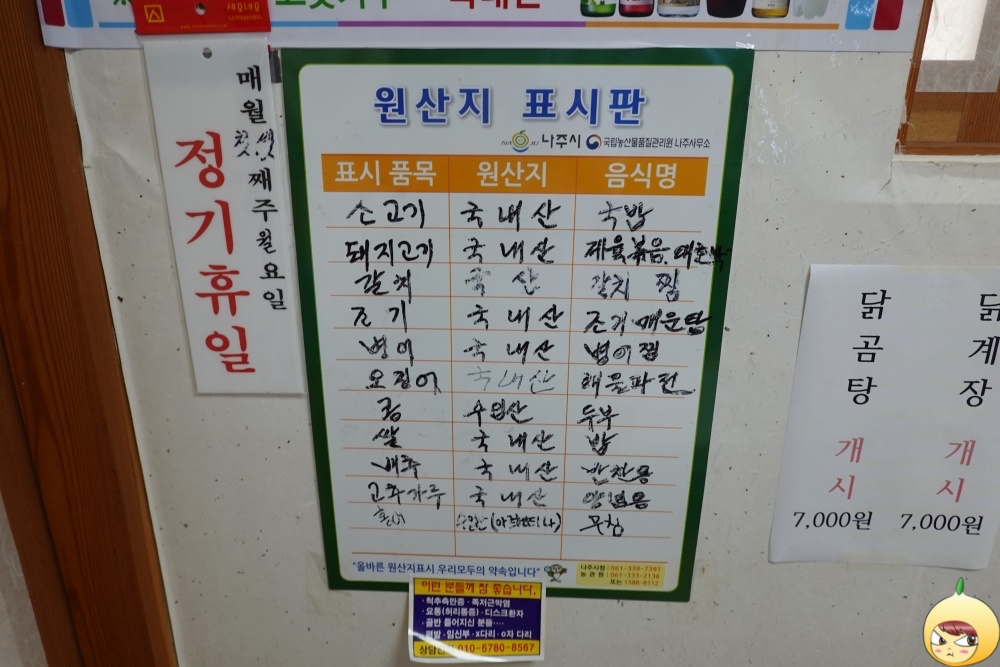 새집네들
매월 첫, 셋째주 월요일
정기휴일
원산지 표시판
나주시 국립농산물품질관리원 나주사무소
표시 품목 원산지 음식명
소고기 국내산 국밥
돼지고기 국내산 제육볶음, 애호박
갈치 국 산 갈치 찜
조기 국내산 조기 매운탕
병어 국내산 병어찜
오징어 국내산 해물파전
콩 수입산 두부
쌀 국내산 밥
배추 국내산 반찬용
고추가루 국내산 양념용
홍어 수입산(아르헨티나) 무침
"올바른 원산지표시 우리모두의 약속입니다"
나주시청 : 061-339-7391
농관원 : 061-333-2136
또는 1588-8112
이런 분들께 참 좋습니다.
· 척추측만증 · 족저근막염
· 요통(허리통증) · 디스크환자
· 골반 틀어지신 분들····
· 평발 · 임신부 · x다리 · o자 다리
010-6780-8567
닭곰탕
개시
7,000원
닭계장
개시
7,000원